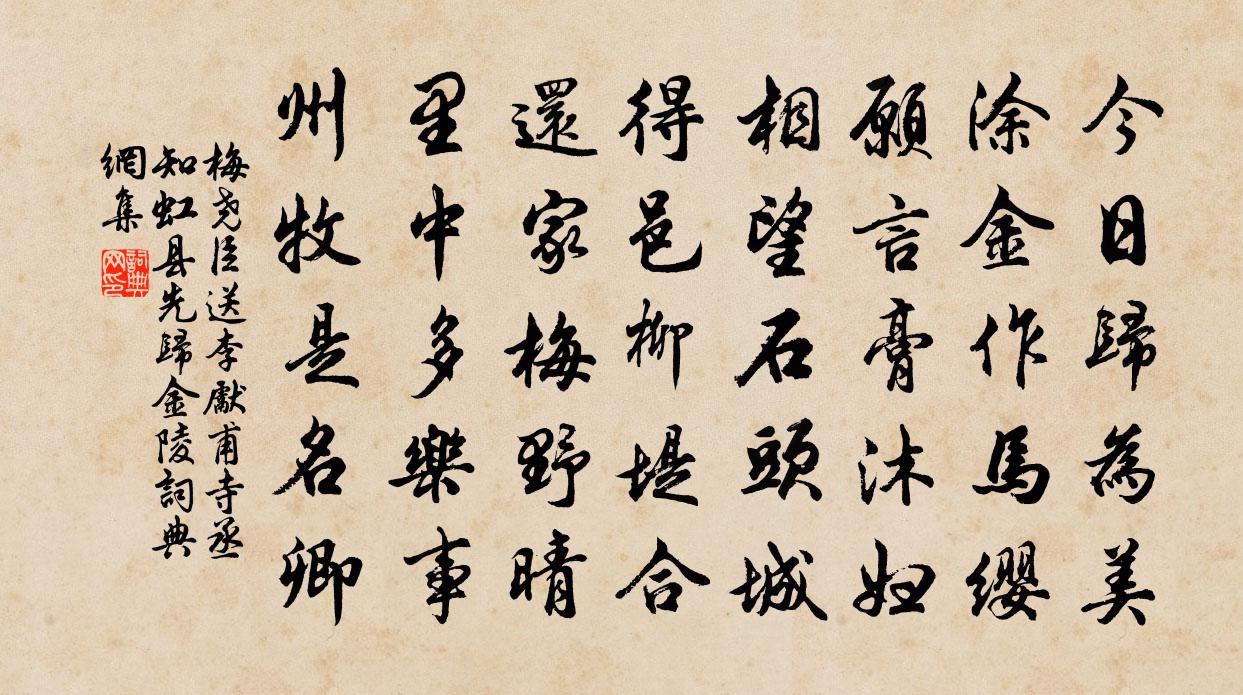 今日歸為美
涂金作馬纓
願言膏沐妲
相望石頭城
得邑柳堤合
還家梅野晴
里中多樂事
州牧是名卿
梅尧臣送李獻甫寺丞
知虹县先歸金陵詞典
網集
詞典网印